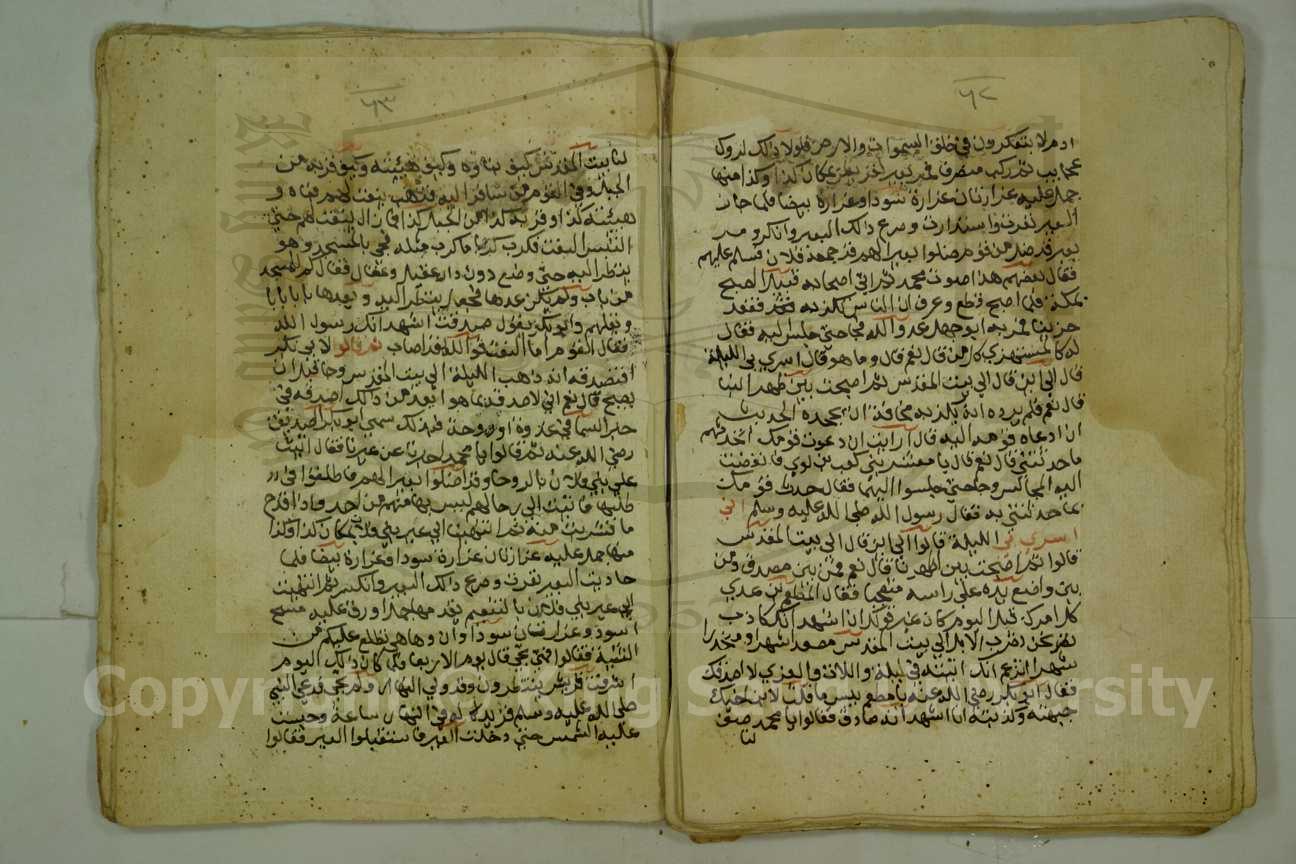 ٦٢
ادم لا يتفكرون في خلق السموات والارض فلولا ذلك لروا
عجايب ثم ركب منصرفا فمر بعير لقريش بمكان كذا وكذا منها
جمل عليه غرارتان غرارة سودا وغرارة بيضا فلما حاذ
العير نفرت واستدارت وصرع ذالك البعير وانكسر ومر
بعير قد ضلوا بعيرا لهم قد جمعه فلان فسلم عليهم
فقال بعضهم هذا صوت محمد ثم اتى اصحابه قبيل الصبح
بمكة فلما اصبح قطع وعرف ان الناس تكذبه فقعد
حزينا فمر به ابو جهل عدو الله فجا حتى جلس اليه فقال
له كالمستهزي كان من قال نعم قال وما هو قال اسري بي الليلة
قال الى اين قال الى بيت المقدس ثم اصبحت بين ظهرانينا
قال نعم فلم يرد انه يكذبه مخافة ان يجحده الحديث
ان دعاه قومه اليه قال ارايت ان دعوت قومك اتحدثهم
ما حدثتني قال نعم قال يا معشر بني كعب بن لوي فانفضت
اليه المجالس وجا حتى جلسوا اليهما فقال حدث قومك
بما حدثتني به فقال رسول الله صلى الله عليه وسلم اني
اسري بي الليلة قالوا الى اين قال الى بيت المقدس
قالوا ثم اصبحت بين اظهرنا قال نعم فمن بين مصدق ومن
بين واضع يده على راسه متعجبا فقال المطعم بن عدي
كل امرك قبل اليوم كان غير قولك انا اشهد انك كاذب
نحن نضرب الابل الى بيت المقدس مصعدا شهرا ومنحدرا
شهرا اتزعم انك اتيته في ليلة واللات والعزى لا اصدقك
فقال ابو بكر رضي الله عنه يا مطعم بيس ما قلت لابن اخيك
جبهته وكذبته انا اشهد انه صادق فقالوا يا محمد صف
لنا
٦٣
لنا بيت المقدس كيف بناوه وكيف هيئته وكيف قربه من
الجبل وفي القوم من سافر اليه فذهب ينعت لهم بناه و
هيئته كذا وقربه من الجبل كذا فما زال ينعت لهم حتى
التبس النعت فكرب كربا ما كرب مثله فجي بالمسجد وهو
ينظر اليه حتى وضع دون دار عقيل وعقال فقال كم للمسجد
من باب ولم يكن عدها فجعل ينظر اليه ويعدها بابا بابا
ويعلمهم وابو بكر يقول صدقت اشهد انك رسول الله
فقال القوم اما النعت فوالله قد اصاب ثم قالوا لابي بكر
افتصدقه انه ذهب الليلة الى بيت المقدس وجا قبل ان
يصبح قال نعم اني لاصدقه بما هو ابعد من ذالك اصدقه في
خبر السما في غدوة او روحة فبذلك سمي ابو بكر الصديق
رضي الله عنه ثم قالوا يا محمد اخبرنا عن عيرنا فقال اتيت
على بني فلان بالروحا وقد اضلوا بعيرا لهم فانطلقوا في
طلبها فاتيت الى رحالهم ليس بها منهم من احد واذا قدح
ما فشربت منه ثم انتهيت الى عير بني فلان بمكان كذا وكذا
منها جمل عليه غرارتان غرارة سودا وغرارة بيضا فلما
حاذيت العير نفرت وصرع ذالك البعير وانكسر ثم انتهيت
الى عير بني فلان بالتنعيم يقدمها جمل اورق عليه مسح
اسود وغرارتان سوداوان وها هي تطلع عليكم من
الثنية فقالوا متى تجي قال يوم الاربعا فلما كان ذالك اليوم
اشرفت قريش ينتظرون وقد ولى النهار ولم تجي فدعى النبي
صلى الله عليه وسلم فزيد له في النهار ساعة وحبست
عليه الشمس حتى دخلت العير فاستقبلوا العير فقالوا
Copyright © King Saud University
King Saud University
1957